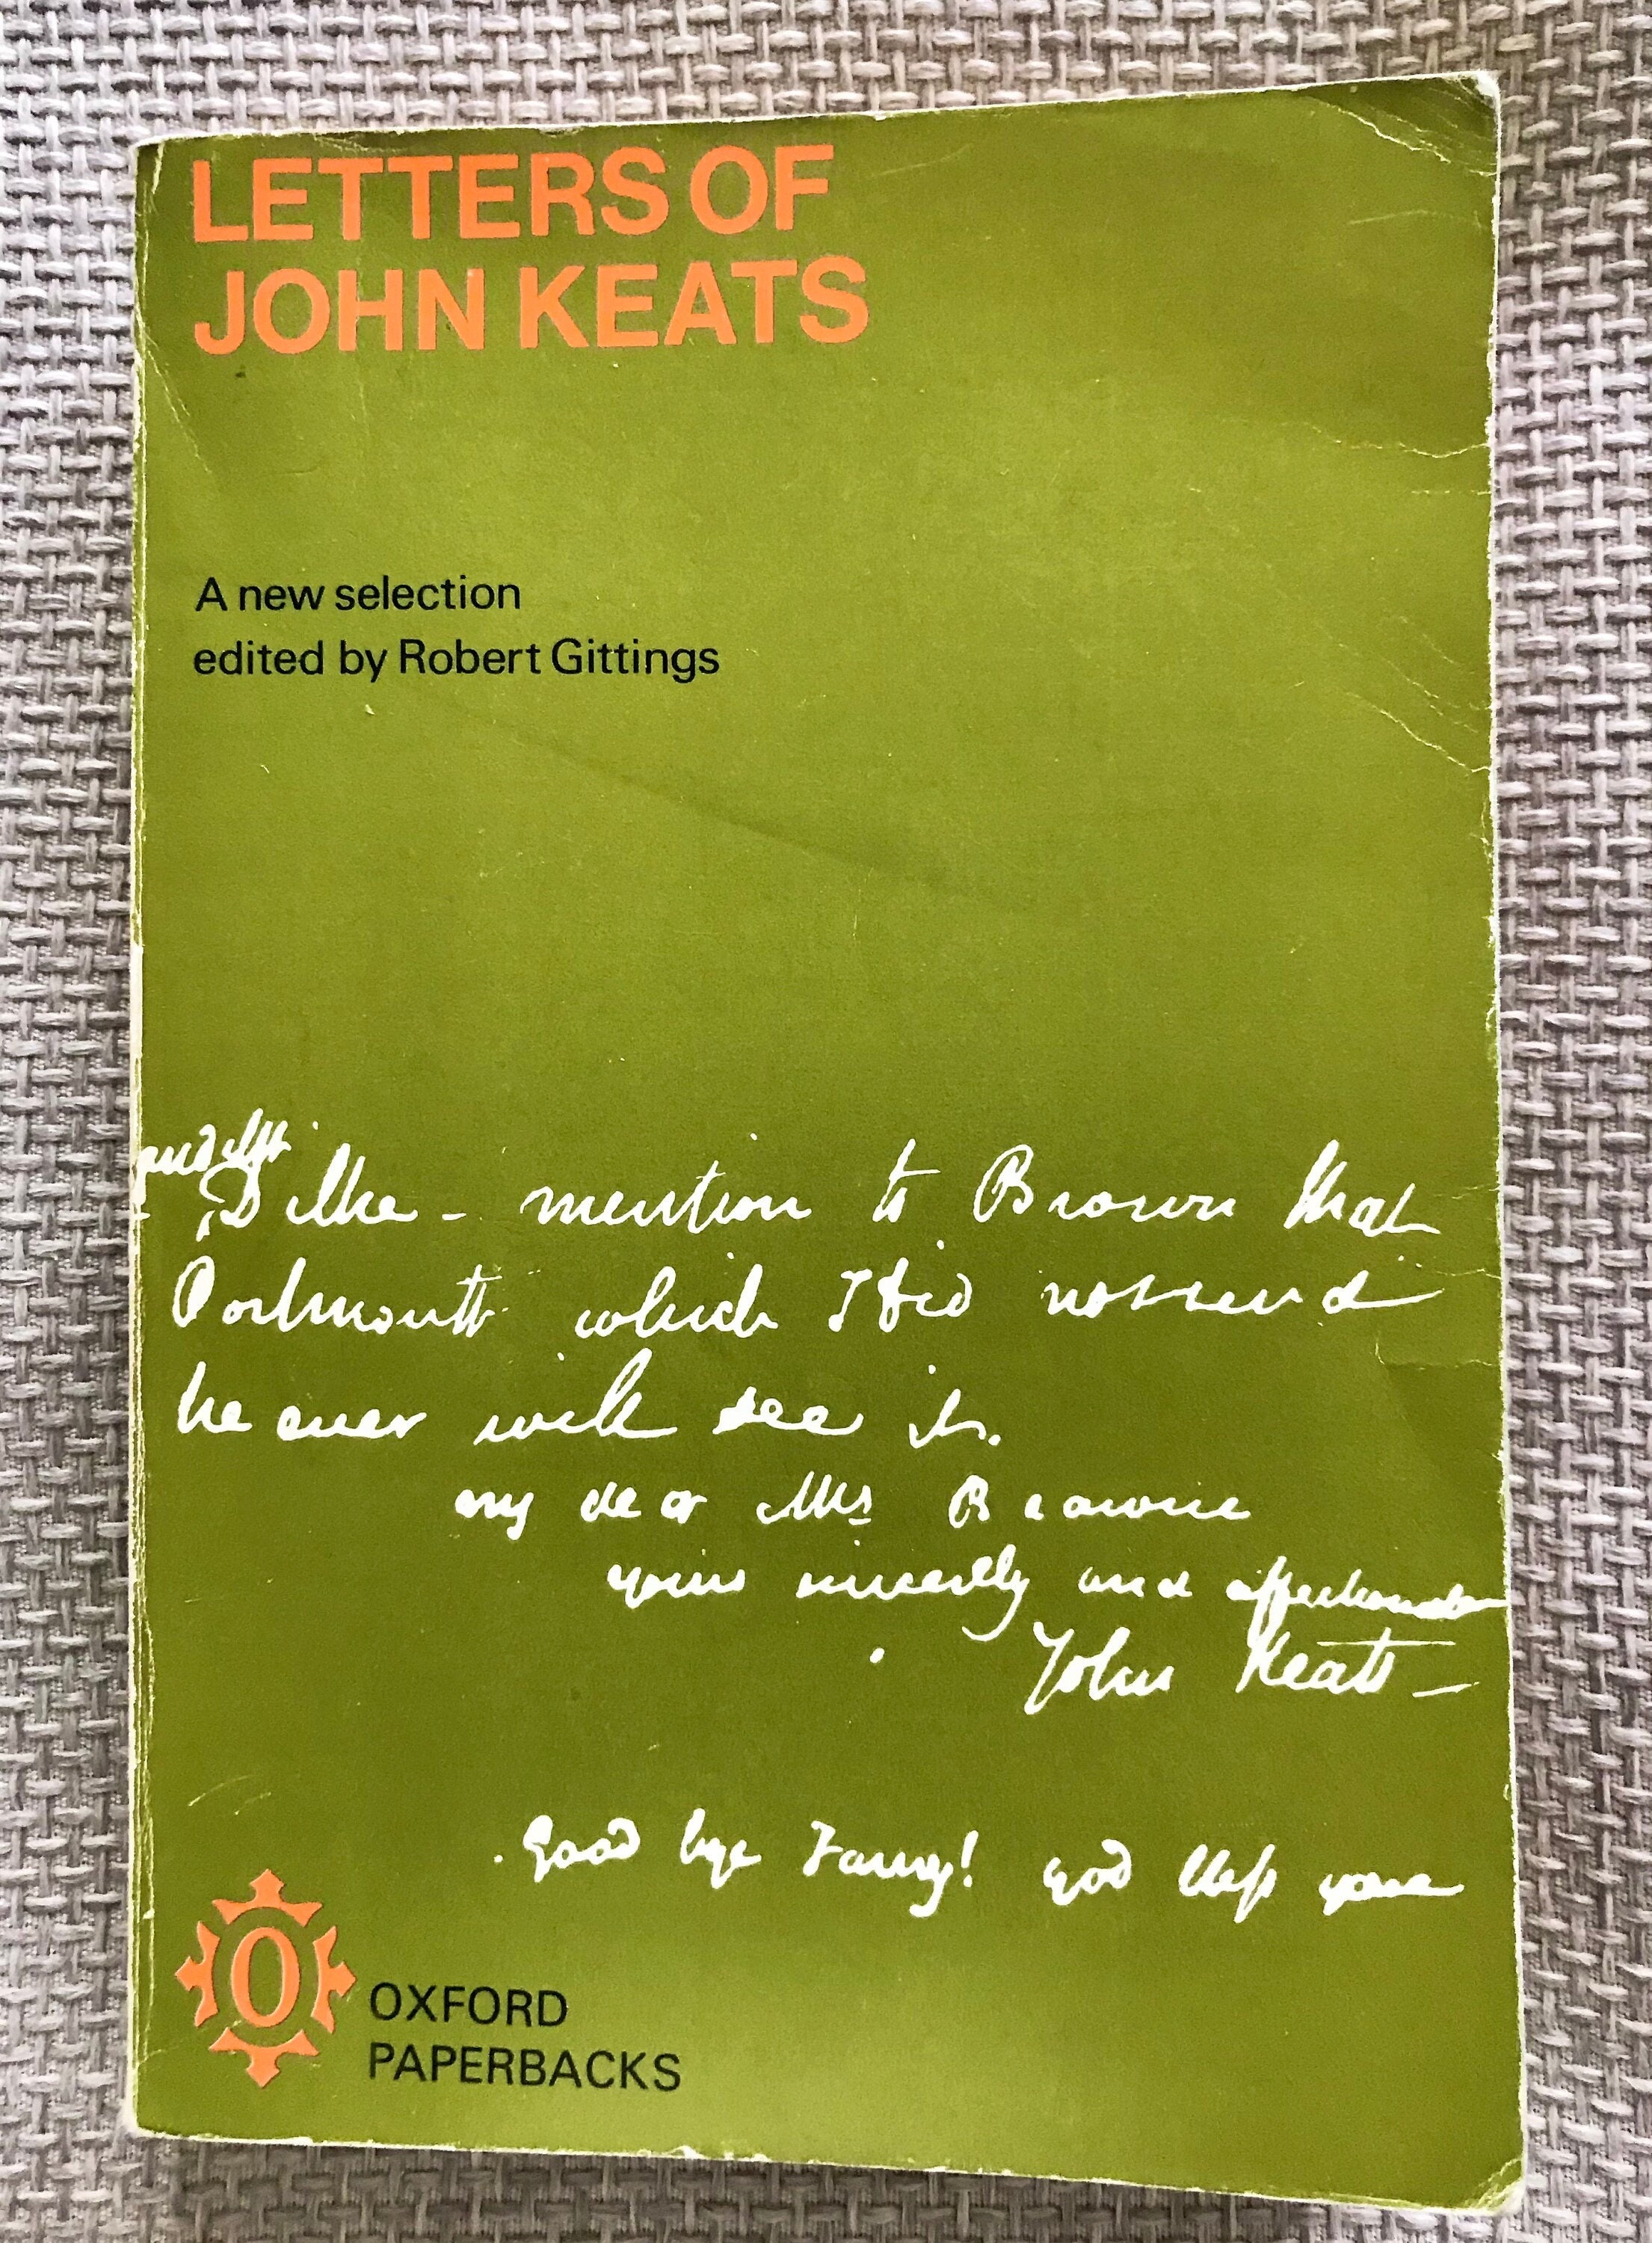 LETTERS OF
JOHN KEATS
A new selection
edited by Robert Gittings
Dilke - mention to Brown that
Portmouth which I did not send
he ever will see it.
my dear Mrs Brawne
yours sincerely and affectionate
John Keats -
Good bye Fanny! god bless you
O
OXFORD
PAPERBACKS